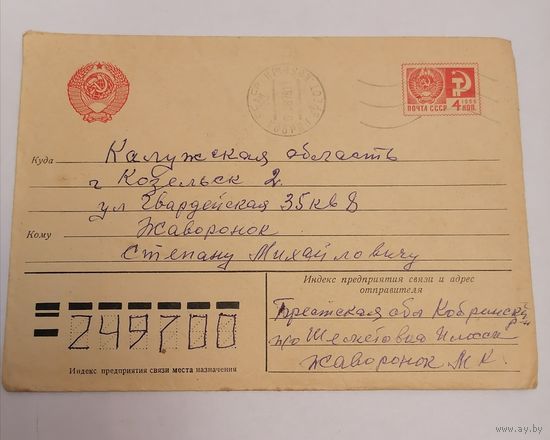 ПОЧТА СССР 4 КОП.
1966
Куда Калужская область
г Козельск 2.
ул Гвардейская 35 кв 8
Кому Жаворонок
Степану Михайловичу
Индекс предприятия связи и адрес
отправителя
Брестская обл Кобринский
р-н
п/о
Жаворонок М К.
249700
Индекс предприятия связи места назначения
www.ay.by